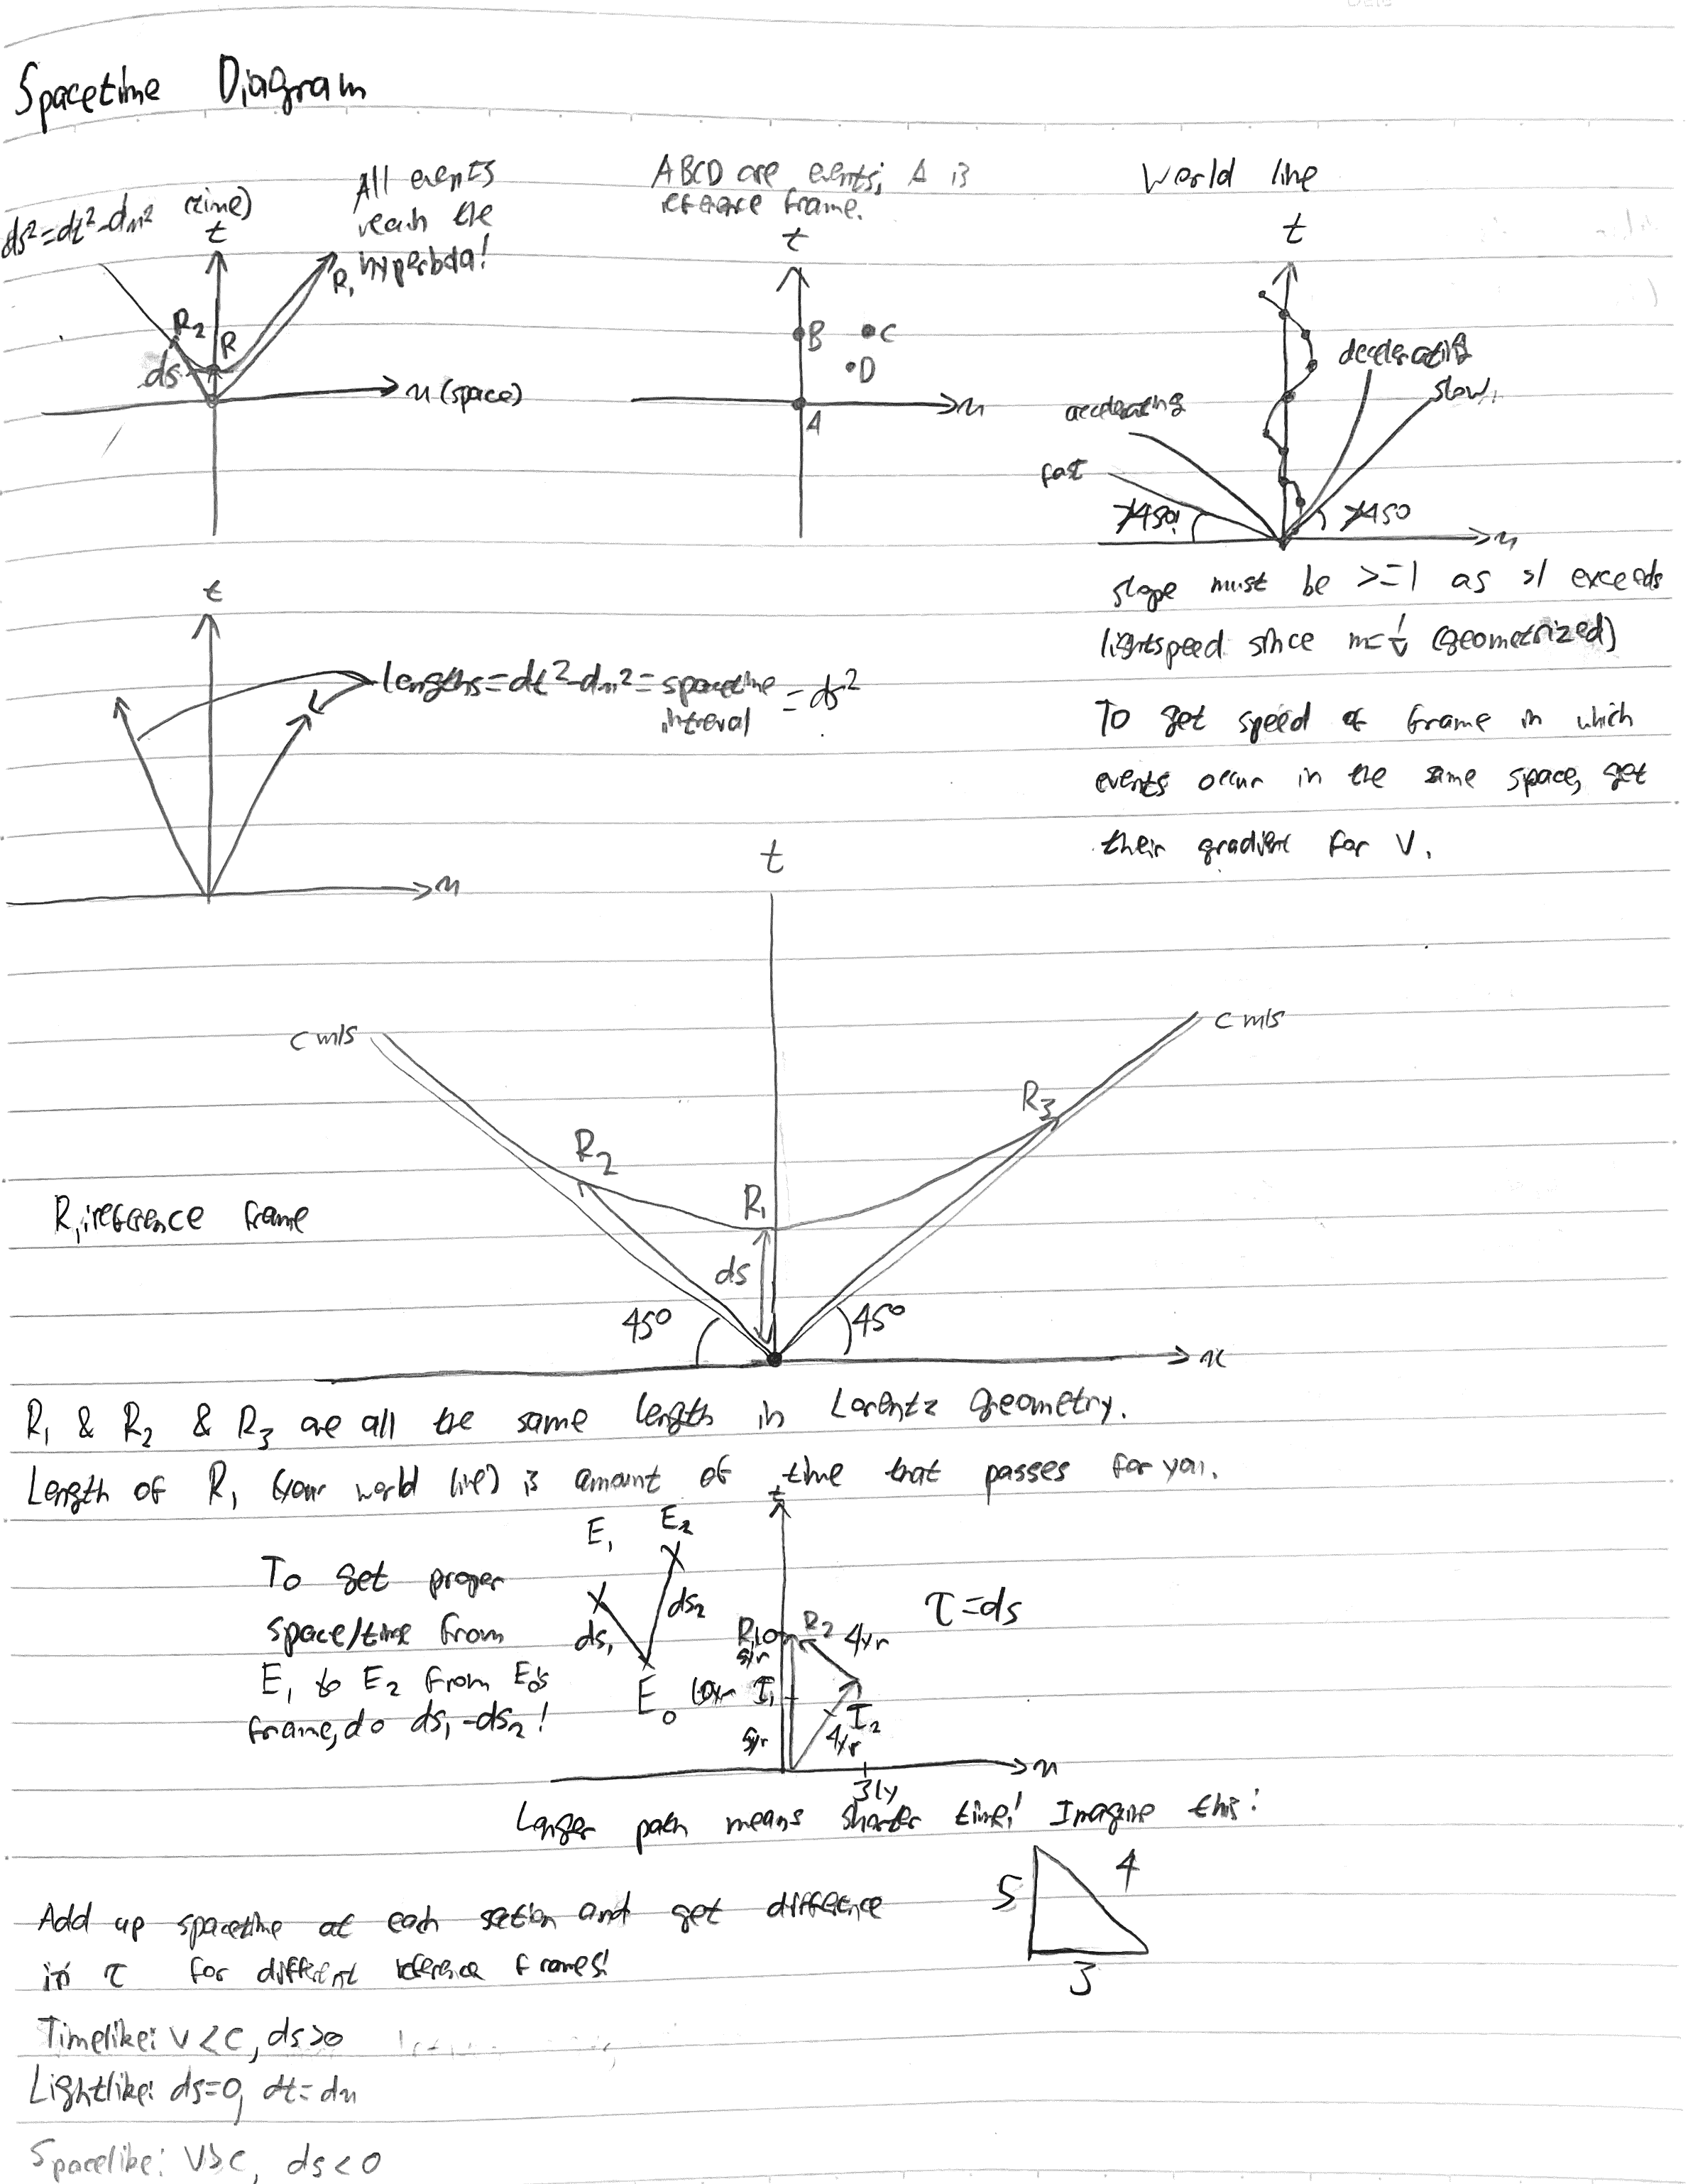 Spacetime Diagram
ds²=dt²-dx²
(time)
t
All events
reach the
hyperbola!
R₁
R₂
R
ds
x (space)
ABCD are events; A is
reference frame.
t
B
C
D
A
x
World line
t
decelerating
slow
accelerating
fast
x
slope must be >=1 as <1 exceeds
lightspeed since m=1/v (geometrized)
To get speed of frame in which
events occur in the same space, get
their gradient for v.
t
lengths=dt²-dx²=spacetime intreval=ds²
x
t
c m/s
c m/s
R₂
R₁
R₃
ds
45°
45°
x
R₁:reference frame
R₁ & R₂ & R₃ are all the same length in Lorentz geometry.
Length of R₁ (your world line) is amount of time that passes for you.
To get proper
space/time from
E₁ to E₂ from E₀'s
frame, do ds₁-ds₂!
E₁
E₂
ds₁
ds₂
E₀
t
τ=ds
R₁
R₂
4yr
5yr
10yr
I₁
I₂
5yr
4yr
x
3ly
Longer path means shorter time! Imagine this:
5
4
3
Add up spacetime at each section and get difference
in τ for different reference frames!
Timelike: v<c, ds>0
Lightlike: ds=0, dt=dx
Spacelike: v>c, ds<0